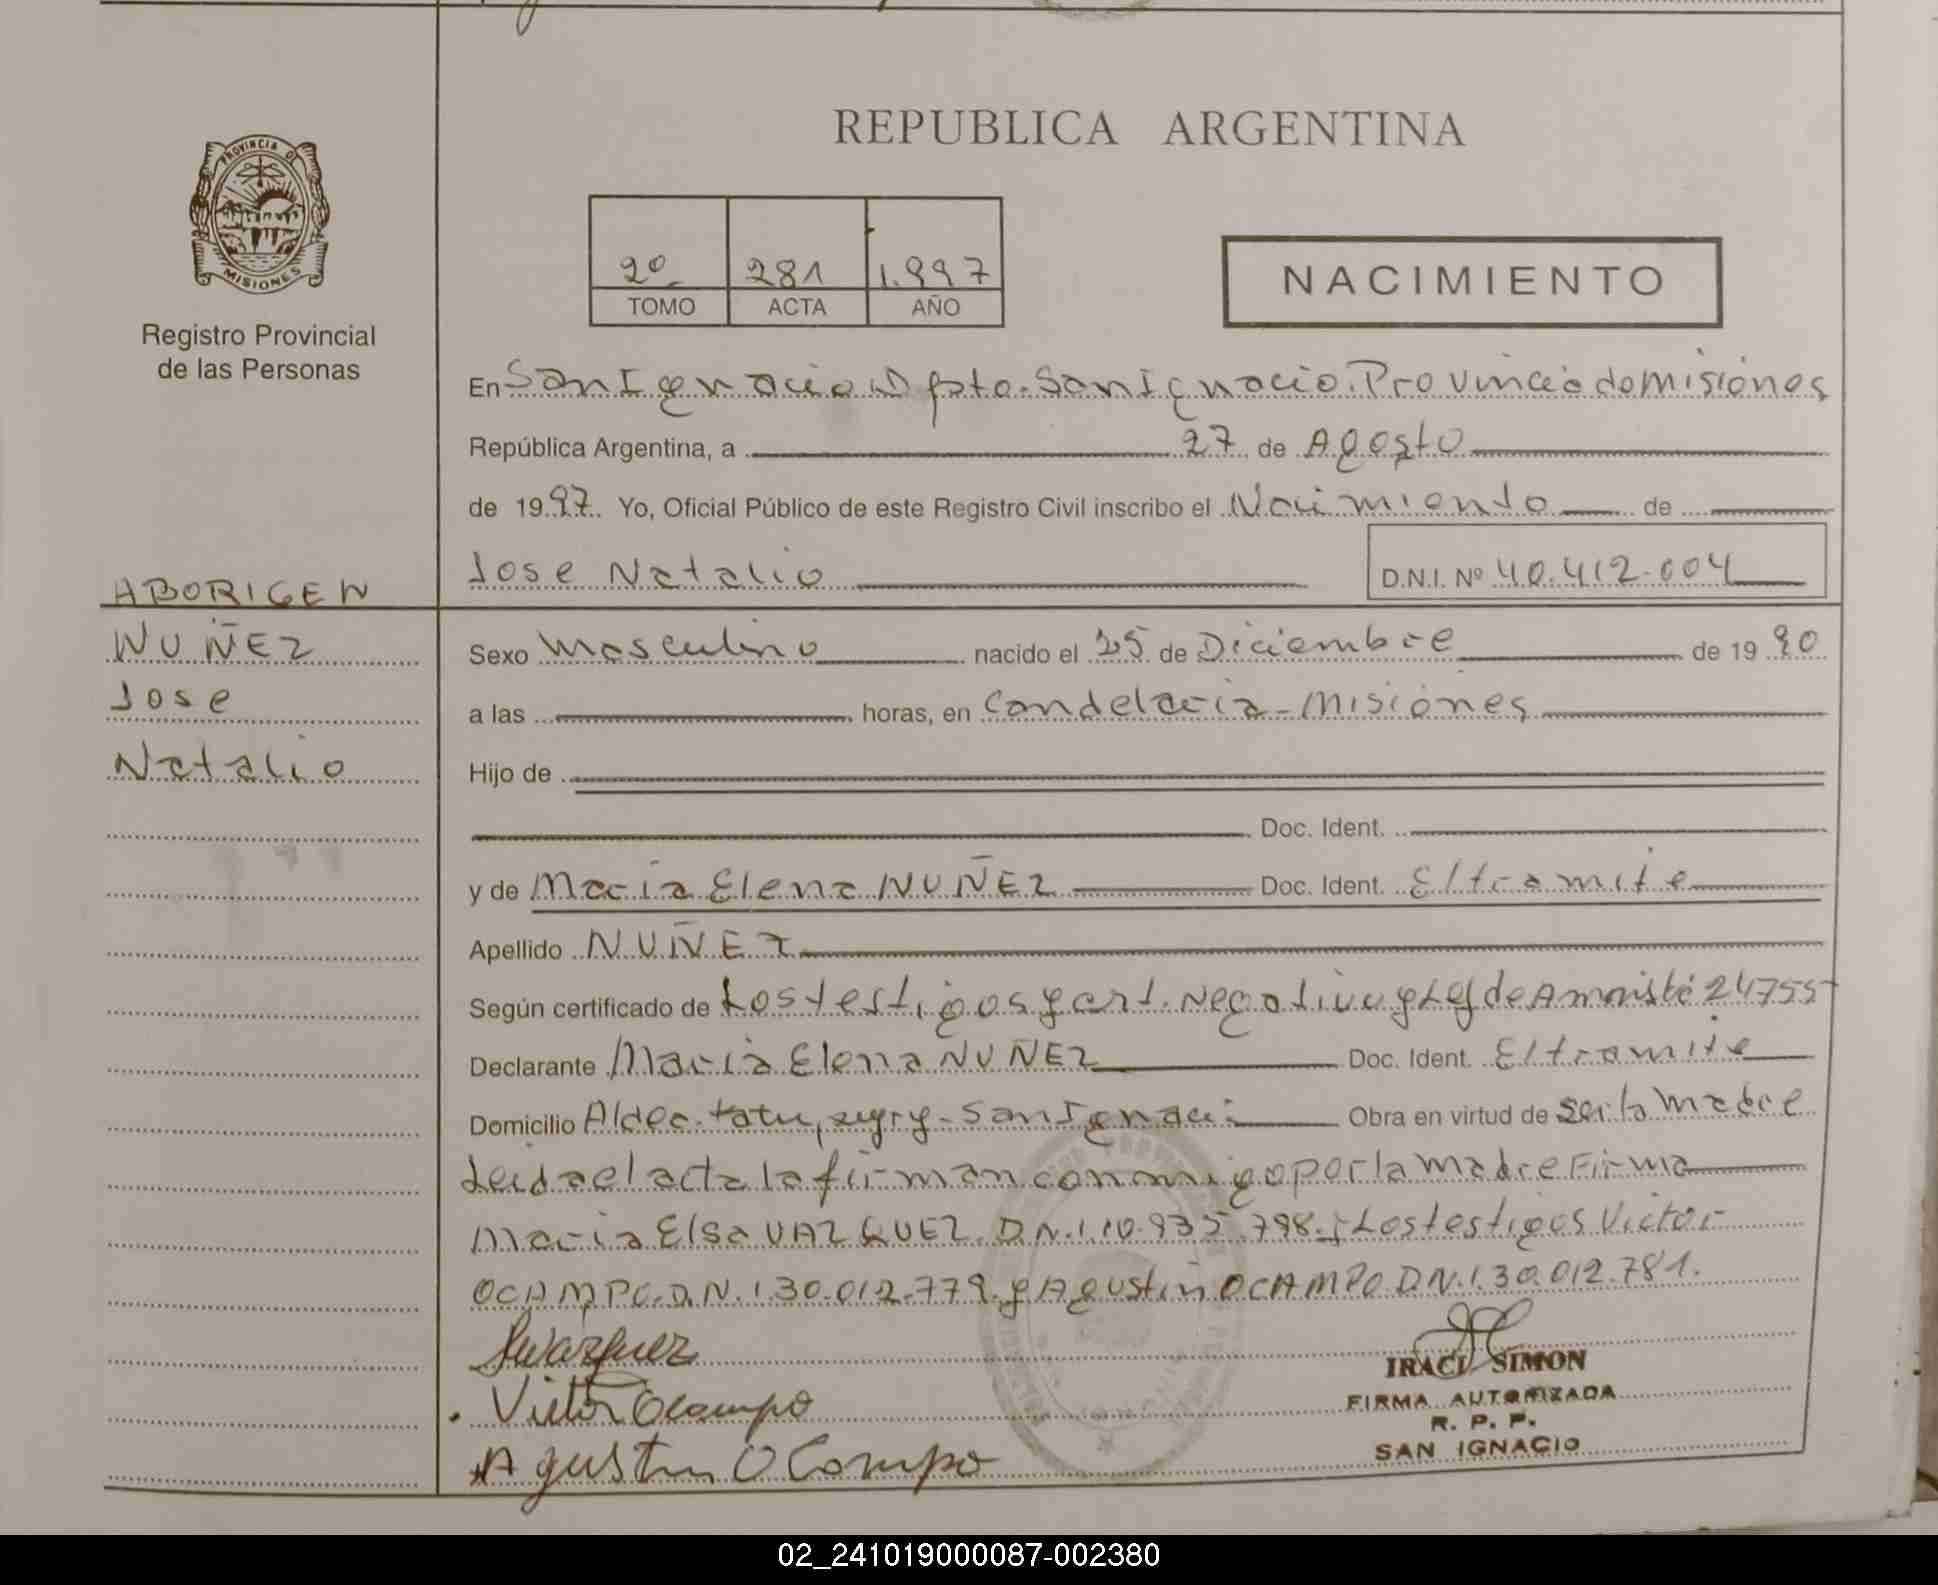 REPUBLICA ARGENTINA
PROVINCIA D
MISIONES
Registro Provincial
de las Personas
2º 281 1.997
TOMO ACTA AÑO
NACIMIENTO
En San Ignacio Dpto. San Ignacio. Provincia de misiones
República Argentina, a 27 de Agosto
de 1997. Yo, Oficial Público de este Registro Civil inscribo el Nacimiento de
Jose Natalio D.N.I. Nº 40.412.004
ABORIGEN
NUÑEZ
Jose
Natalio
Sexo Masculino nacido el 25 de Diciembre de 1990
a las horas, en Candelaria - Misiones
Hijo de
Doc. Ident.
y de Maria Elena NUÑEZ Doc. Ident. E/tramite
Apellido NUÑEZ
Según certificado de Los testigos y cert. Negativo y Ley de Amnistia 24755
Declarante Maria Elena NUÑEZ Doc. Ident. E/tramite
Domicilio Aldea. San Ignaci Obra en virtud de ser la Madre
Leida el acta la firman conmigo por la Madre Firma
Maria Elsa VAZQUEZ. D.N.I.10.935.798.y Los testigos Victor
OCAMPO.D.N.I.30.012.779.y Agustin OCAMPO D.N.I.30.012.781.
Vázquez
Victor Ocampo
Agustin Ocampo
IRACI SIMON
FIRMA AUTORIZADA
R. P. P.
SAN IGNACIO
02_241019000087-002380